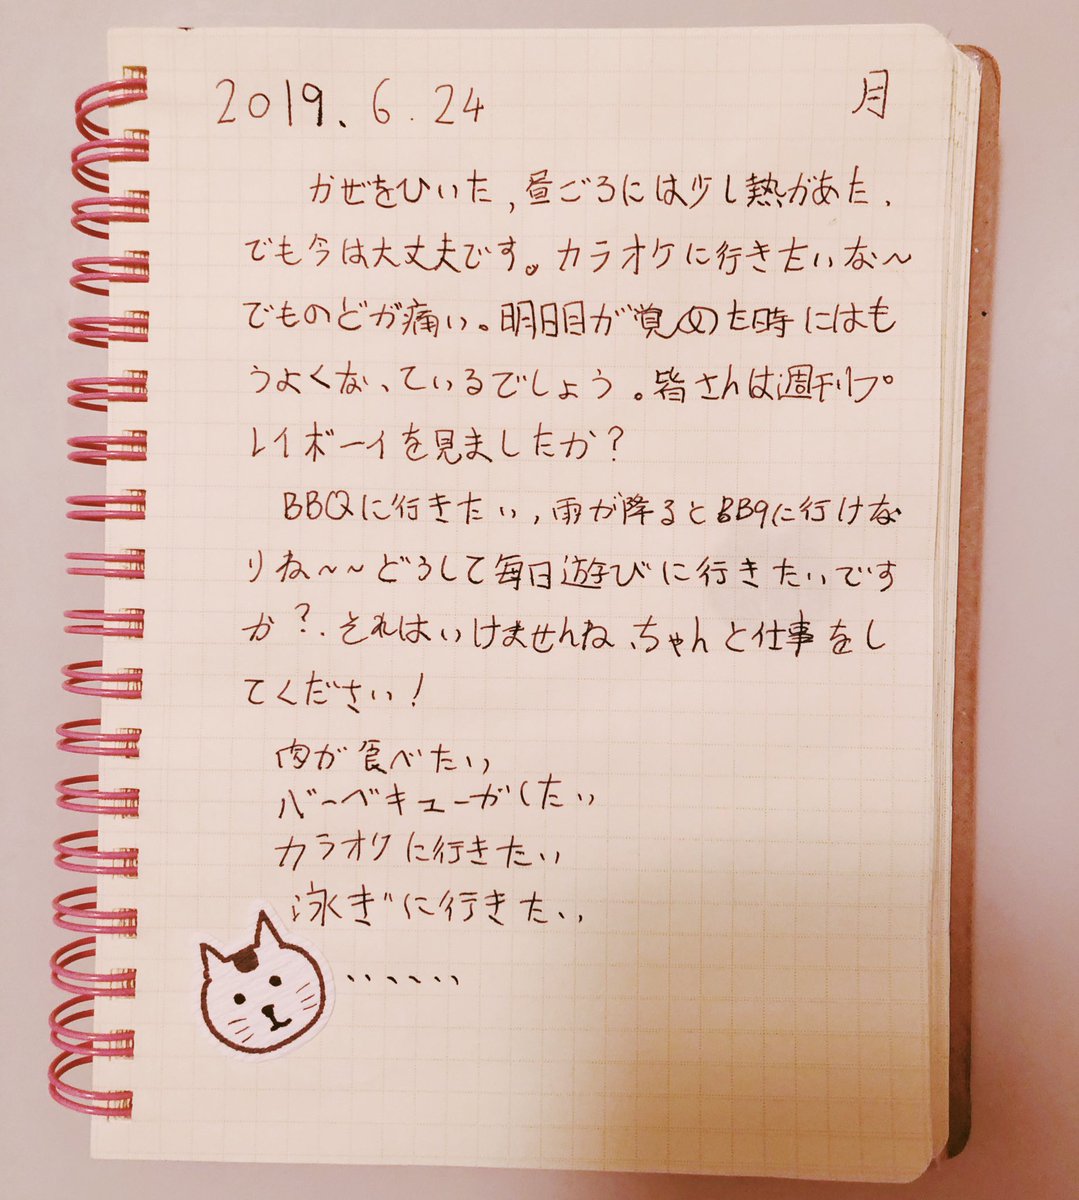 2019.6.24 月
かぜをひいた,昼ごろには少し熱があた.
でも今は大丈夫です。カラオケに行きたいな～
でものどが痛い。明日目が覚めた時にはも
うよくなっているでしょう。皆さんは週刊プ
レイボーイを見ましたか？
BBQに行きたい,雨が降るとBBqに行けな
りね～～どうして毎日遊びに行きたいです
か？.それはいけませんね、ちゃんと仕事をし
てください！
肉が食べたい
バーベキューがしたい
カラオケに行きたい
泳ぎに行きたい
、、、、、、